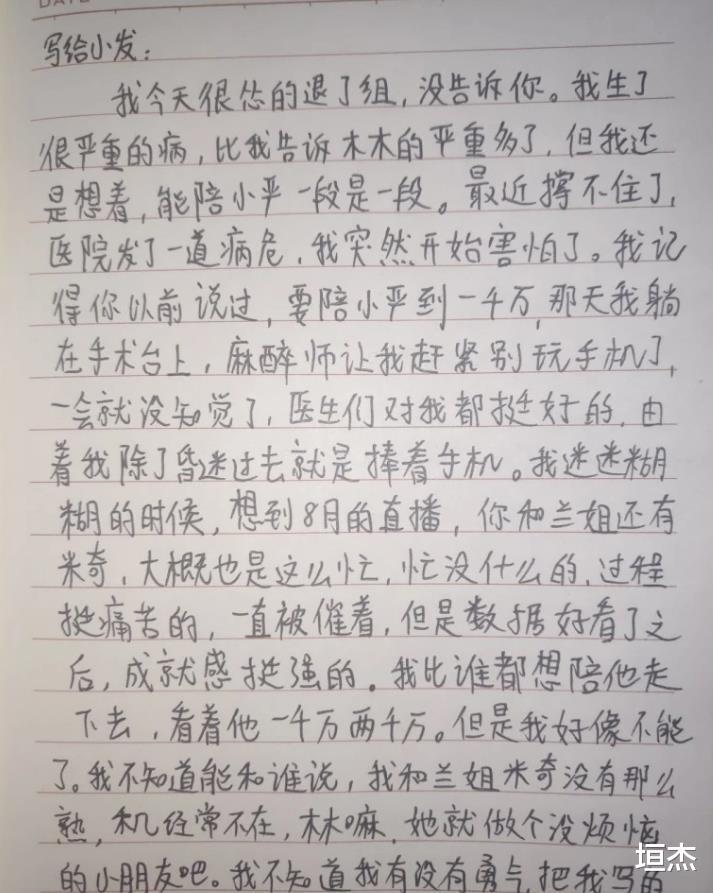 DATE
写给小发：
我今天很怂的退了组，没告诉你。我生了
很严重的病，比我告诉木木的严重多了，但我还
是想着，能陪小严一段是一段。最近撑不住了，
医院发了一道病危，我突然开始害怕了。我记
得你以前说过，要陪小严到一千万，那天我躺
在手术台上，麻醉师让我赶紧别玩手机了，
一会就没知觉了，医生们对我都挺好的，由
着我除了昏迷过去就是捧着手机。我迷迷糊
糊的时候，想到8月的直播，你和兰姐还有
米奇，大概也是这么忙，忙没什么的，过程
挺痛苦的，一直被催着，但是数据好看了之
后，成就感挺强的。我比谁都想陪他走
下去，看着他一千万两千万。但是我好像不能
了。我不知道能和谁说，我和兰姐米奇没有那么
熟，机经常不在，木木嘛，她就做个没烦恼
的小朋友吧。我不知道我有没有勇气，把我写的
垣杰